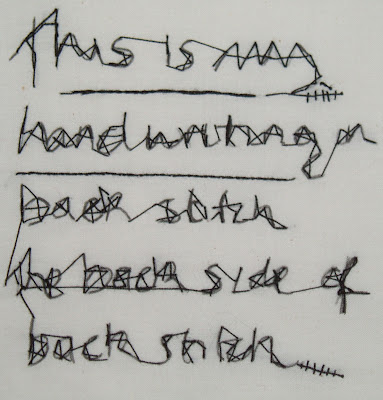 This is my
handwriting in
back stitch
the back side of
back stitch